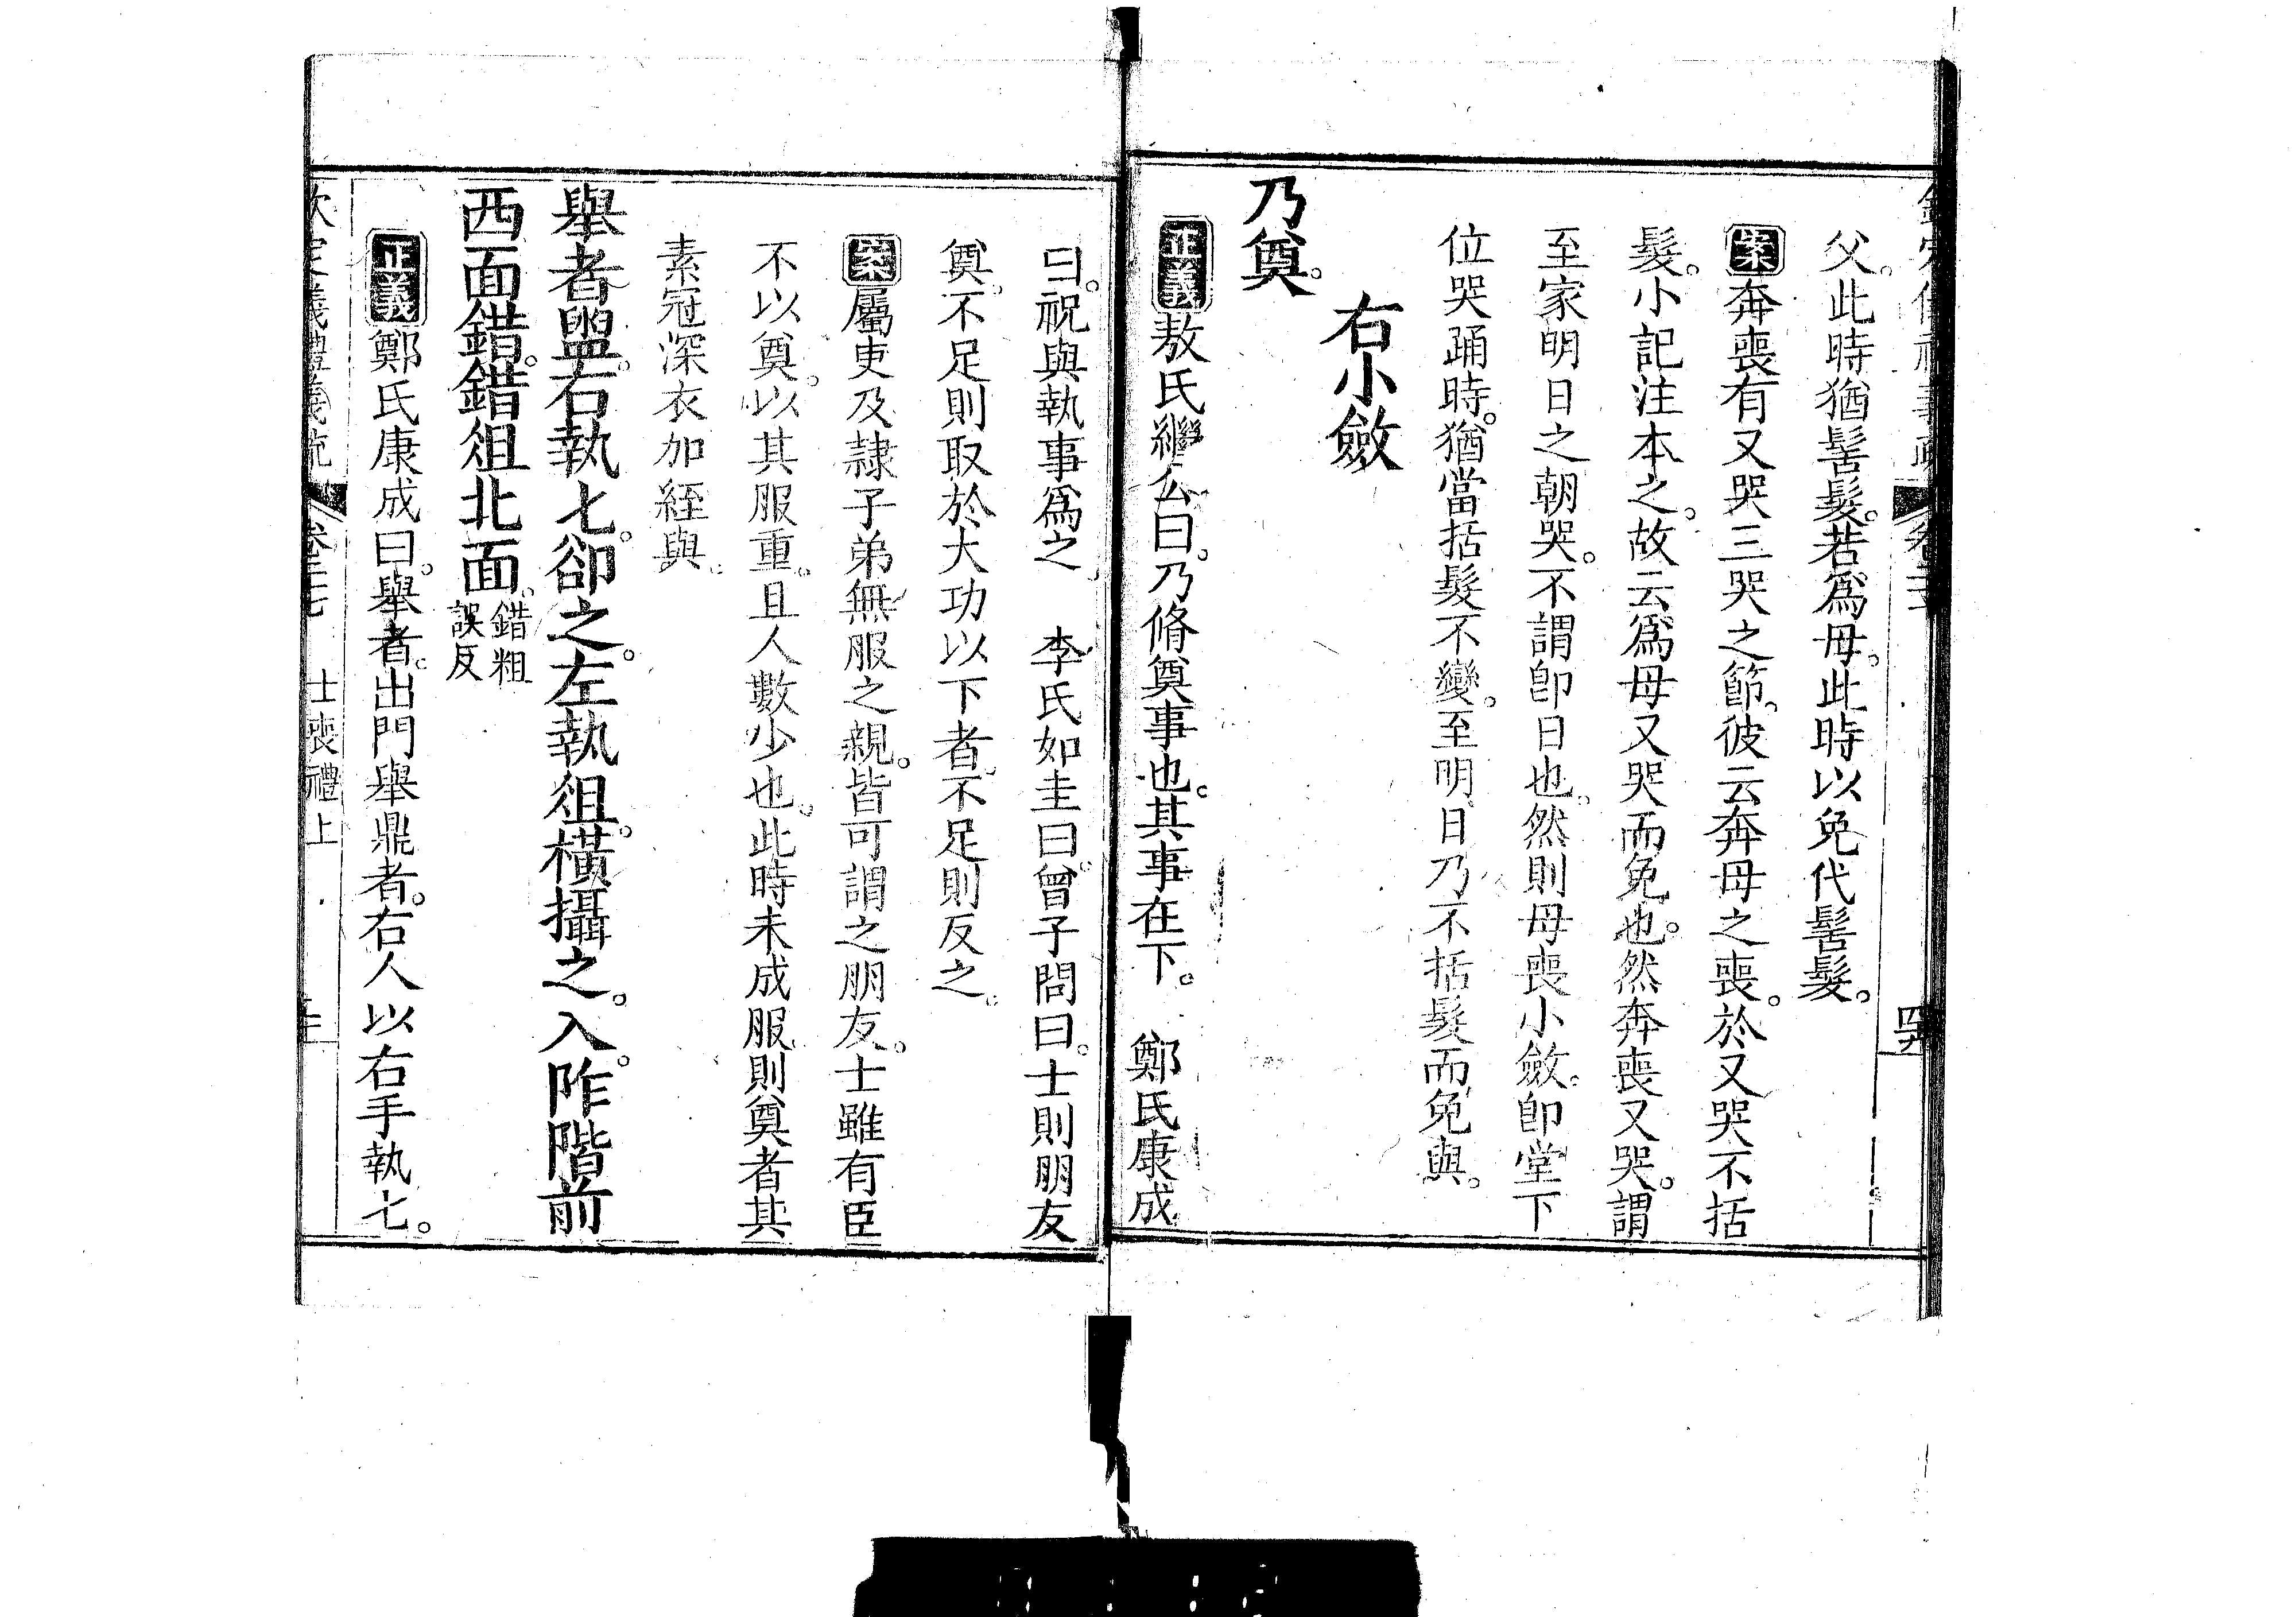 父。此時猶髻髮。若爲母。此時以免代髻髮。
案奔喪有又哭三哭之節。彼云奔母之喪。於又哭不括
髮。小記注本之。故云爲母又哭而免也。然奔喪又哭。謂
至家明日之朝哭。不謂卽日也。然則母喪小斂。卽堂下
位哭踊時。猶當括髮不變。至明日乃不括髮而免與。
右小斂
乃奠。
正義敖氏繼公曰。乃脩奠事也。其事在下。 鄭氏康成
曰。祝與執事爲之 李氏如圭曰。曾子問曰。士則朋友
奠。不足則取於大功以下者。不足則反之。
案屬吏及隷子弟無服之親。皆可謂之朋友。士雖有臣
不以奠。以其服重。且人數少也。此時未成服則奠者其
素冠深衣加絰與。
舉者盥。右執匕。卻之。左執俎。橫攝之。入。阼階前
西面錯。錯俎北面。錯粗
誤反
正義鄭氏康成曰。舉者。出門舉鼎者。右人以右手執匕。
士喪禮上